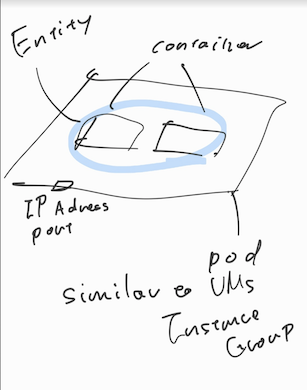 Entity
container
IP Adress
port
pod
similar to VMs
Instance
Group